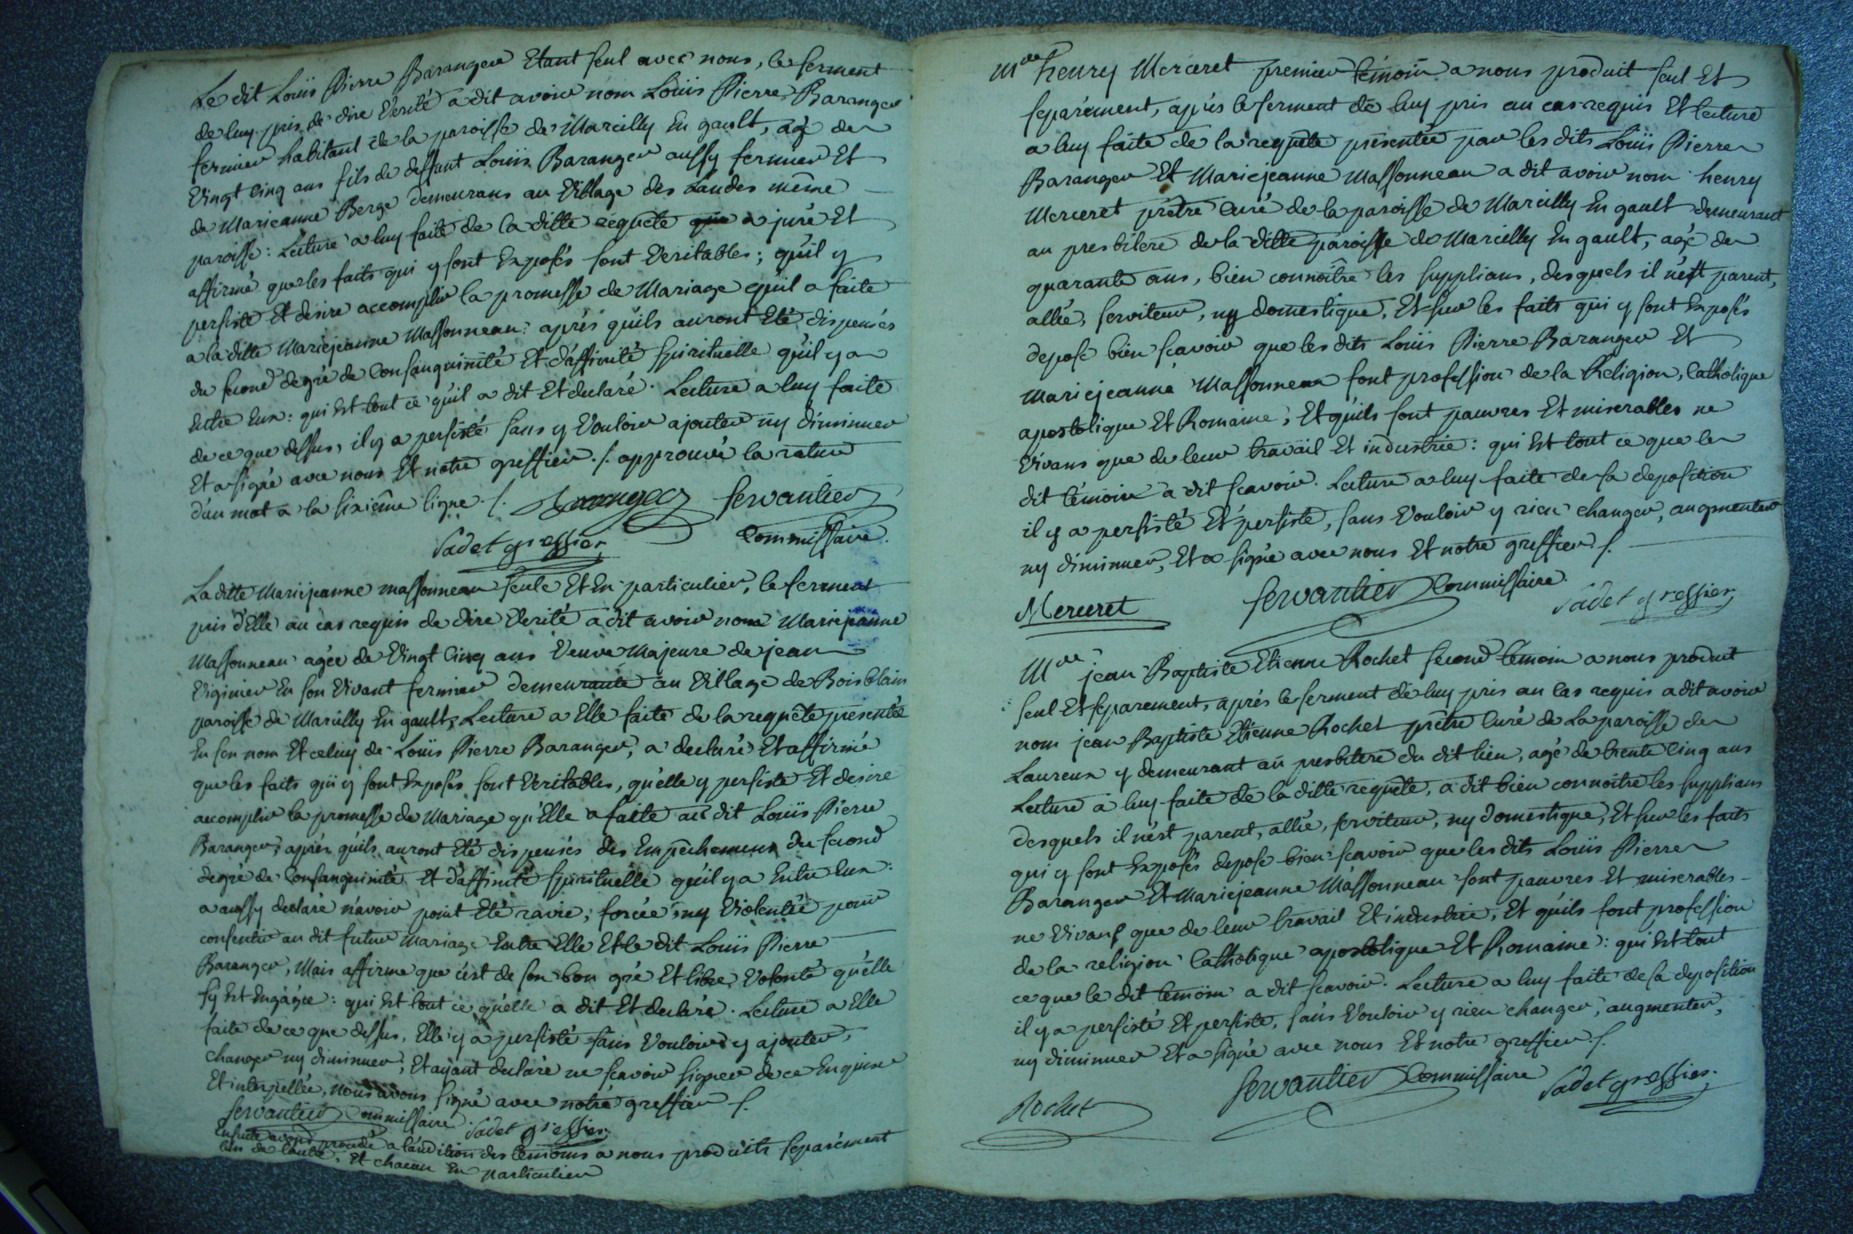 Le dit Loüis Pierre Baranger Etant seul avec nous, le serment
de luy pris de dire Verité a dit avoir nom Loüis Pierre Baranger
fermier habitant de la paroisse de Marcilly En gault, agé de
Vingt Cinq ans fils de deffunt Loüis Baranger aussy fermier Et
de Marieanne Berge demeurans au Village des Landes même
paroisse : Lecture a luy faite de la ditte requete que a juré Et
affirmé que les faits qui y sont Exposés sont Veritables ; qu'il y
persiste Et desire accomplir la promesse de Mariage qu'il a faite
a la ditte Mariejeanne Massonneau : aprés qu'ils auront Eté dispensés
du second degré de Consanguinité Et d'affinité Spirituelle qu'il y a
Entre Eux : qui Est tout ce qu'il a dit Et declaré. Lecture a luy faite
de ce que dessus, il y a persisté sans y Vouloir ajouter ny diminuer
Et a signé avec nous Et notre greffier ./. approuvé la rature
d'un mot a la sixième ligne ./. Baranger Servantier
Sadet greffier Commissaire.
La ditte Mariejeanne massonneau seule Et En particulier, le serment
pris d'Elle au cas requis de dire Verité a dit avoir nom Mariejeanne
Massonneau agée de Vingt Cinq ans Veuve Majeure de jean
Viginier En son Vivant fermier demeurante au Village de Boisblain
paroisse de Marcilly En gault, Lecture a Elle faite de la requête presentée
En son nom Et celuy de Loüis Pierre Baranger, a declaré Et affirmé
que les faits qui y sont Exposés sont Veritables, qu'elle y persiste Et desire
accomplir la promesse de Mariage qu'Elle a faite au dit Loüis Pierre
Baranger, aprés qu'ils auront Eté dispensés des Empêchemens du second
degré de Consanguinité Et d'affinité Spirituelle qu'il y a Entre Eux :
a aussy declaré n'avoir point Eté ravie, forcée ny Violentée pour
consentir au dit futur Mariage Entre Elle Et le dit Loüis Pierre
Baranger, Mais affirme que c'est de son bon gré Et libre Volonté qu'elle
s'y Est Engagée : qui Est tout ce qu'elle a dit Et declaré. Lecture a Elle
faite de ce que dessus, Elle y a persisté sans Vouloir y ajouter,
changer ny diminuer, Et ayant declaré ne scavoir signer de ce Enquise
Et interpellée, nous avons signé avec notre greffier ./.
Servantier Commissaire Sadet greffier
Ensuite avons procedé a l'audition des temoins a nous produits separément
l'un de l'autre, Et chacun En particulier
Mre henry Merceret premier témoin a nous produit seul Et
separément, aprés le serment de luy pris au cas requis Et lecture
a luy faite de la requête presentée par les dits Loüis Pierre
Baranger Et Mariejeanne Massonneau a dit avoir nom henry
Merceret prêtre Curé de la paroisse de Marcilly En gault demeurant
au presbitere de la ditte paroisse de Marcilly En gault, agé de
quarante ans, bien connoître les supplians, desquels il n'est parent,
allié, serviteur, ny domestique, Et sur les faits qui y sont Exposés
depose bien scavoir que les dits Loüis Pierre Baranger Et
Mariejeanne Massonneau font profession de la Religion, Catholique
apostolique Et Romaine ; Et qu'ils sont pauvres Et miserables ne
Vivans que de leur travail Et industrie : qui Est tout ce que le
dit témoin a dit scavoir. Lecture a luy faite de sa deposition
il y a persisté Et persiste, sans Vouloir y rien changer, augmenter
ny diminuer, Et a signé avec nous Et notre greffier ./.
Merceret Servantier Commissaire Sadet greffier
Mre jean Baptiste Etienne Rochet second temoin a nous produit
seul Et separement, aprés le serment de luy pris au cas requis a dit avoir
nom jean Baptiste Etienne Rochet prêtre Curé de La paroisse de
Laureux y demeurant au presbitere du dit lieu, agé de trente Cinq ans
Lecture a luy faite de la ditte requête, a dit bien connoître les supplians
desquels il n'est parent, allié, serviteur, ny domestique, Et sur les faits
qui y sont Exposés depose bien scavoir que les dits Loüis Pierre
Baranger Et Mariejeanne Massonneau sont pauvres Et miserables
ne Vivans que de leur travail Et industrie, Et qu'ils font profession
de la religion Catholique apostolique Et Romaine : qui Est tout
ce que le dit temoin a dit scavoir. Lecture a luy faite de sa deposition
il y a persisté Et persiste, sans Vouloir y rien changer, augmenter,
ny diminuer Et a signé avec nous Et notre greffier ./.
Rochet Servantier Commissaire Sadet greffier.